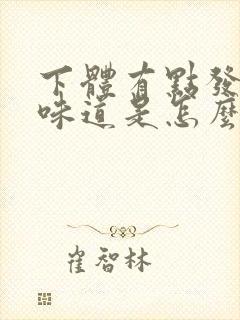 下體有點發
味道是怎麼
崔智林